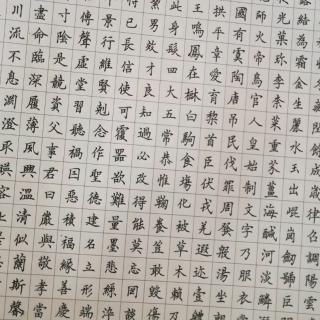 成歲律召調陽雲騰
結為霜金生麗水玉出崑岡劍號巨
光果珍李柰菜重芥薑海鹹河淡鱗
師火帝鳥官人皇始制文字乃服衣
國有虞陶唐弔民伐罪周發殷湯坐
拱平章愛育黎首臣伏戎羌遐邇壹
王鳴鳳在樹白駒食場化被草木賴
此身髮四大五常恭惟鞠養豈敢毀
男效才良知過必改得能莫忘罔
己長信使可覆器欲難量墨悲
景行維賢剋念作聖德建名立形端
傳聲虛堂習聽禍因惡積福緣善慶
寸陰是競資父事君曰嚴與敬孝當
盡命臨深履薄夙興溫清似蘭斯馨
川流不息淵澄取暎容